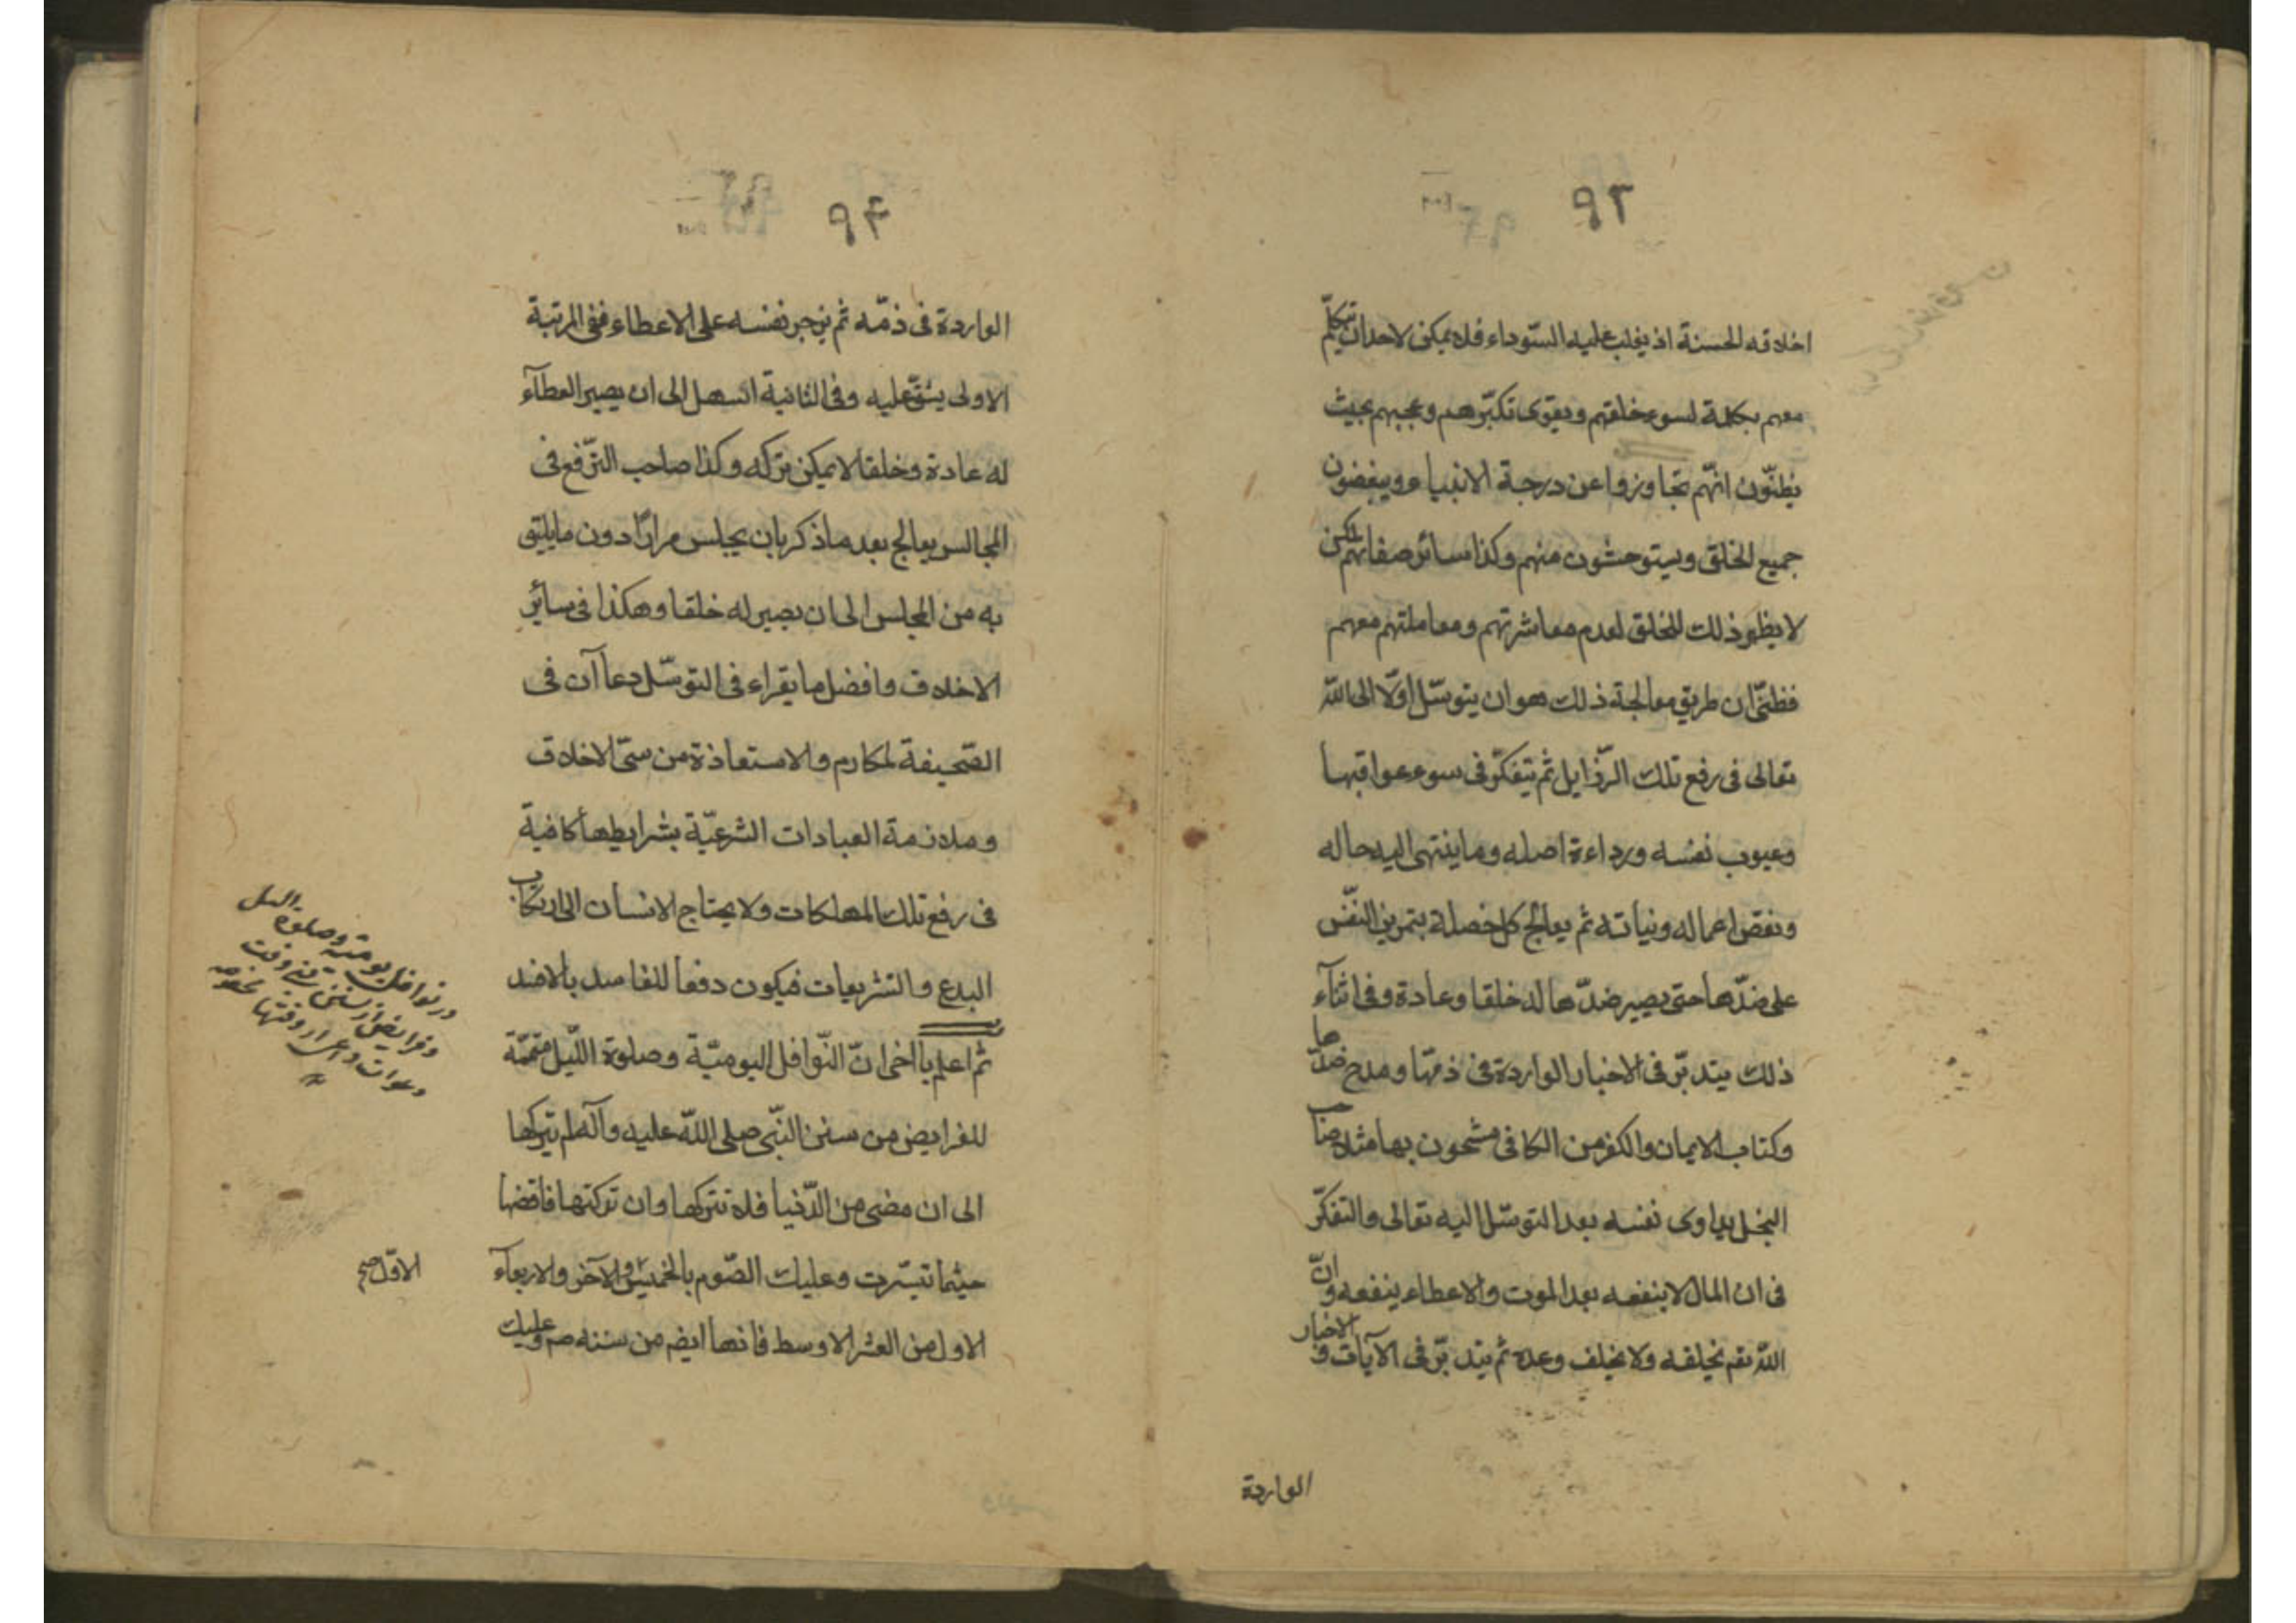 ٩٣
اخلاقه الحسنة اذ يغلب عليه السّوداء فلا يمكن لاحد ان يتكلّم
معهم بكلمة لسوء خلقهم ويقوى تكبّرهم وعجبهم بحيث
يظنّون انهّم تجاوزوا عن درجة الانبياء ويبغضون
جميع الخلق ويستوحشون منهم وكذا سائر صفاتهم لكن
لا يظهر ذلك للخلق لعدم معاشرتهم ومعاملتهم معهم
فظنّى ان طريق معالجة ذلك هو ان يتوسّل اوّلا الى اللّه
تعالى فى رفع تلك الرّذايل ثم يتفكّر فى سوء عواقبها
وعيوب نفسه ورداءة اصله وما ينتهى اليه حاله
ونقص اعماله ونياته ثم يعالج كل خصلة بتمرين النّفس
على ضدّها حتى يصير ضدّها له خلقا وعادة وفى اثنآء
ذلك يتدبّر فى الاخبار الواردة فى ذمّها ومدح ضدّها
وكتاب الايمان والكفر من الكافى مشحون بها مثلا صاحب
البخل يداوى نفسه بعد التوسّل اليه تعالى والتفكّر
فى ان المال لا ينفعه بعد الموت والاعطاء ينفعه وانّ
اللّه تعم يخلفه ولا يخلف وعده ثم يتدبّر فى الآيات و الاخبار
الواردة
٩٤
الواردة فى ذمّه ثم يزجر نفسه على الاعطاء ففى المرتبة
الاولى يشقّ عليه وفى الثانية اسهل الى ان يصير العطآء
له عادة وخلقا لا يمكن تركه وكذا صاحب التّرفع فى
المجالس يعالج بعد ما ذكر بان يجلس مرارًا دون ما يليق
به من المجلس الى ان يصير له خلقا وهكذا فى سائر
الاخلاق وافضل ما يقراء فى التوسّل دعاآن فى
الصّحيفة لمكارم والاستعاذة من سىّ الاخلاق
وملازمة العبادات الشرعيّة بشرايطها كافية
فى رفع تلك المهلكات ولا يحتاج الانسان الى ارتكاب
البدع والتشريعات فيكون دفعا للفاسد بالافسد
ثم اعلم يا اخى انّ النّوافل اليوميّة وصلوة اللّيل متمّة
للفرايض من سنن النّبى صلى اللّه عليه وآله لم يتركها
الى ان مضى من الدّنيا فلا تتركها وان تركتها فاقضها
حيثما تيسّرت وعليك الصّوم بالخميس و الآخر والاربعآء
الاول من العشر الاوسط فانها ايضم من سننه صم وعليك
در نوافل يوميّة وصلوة الليل
الاوّل صح